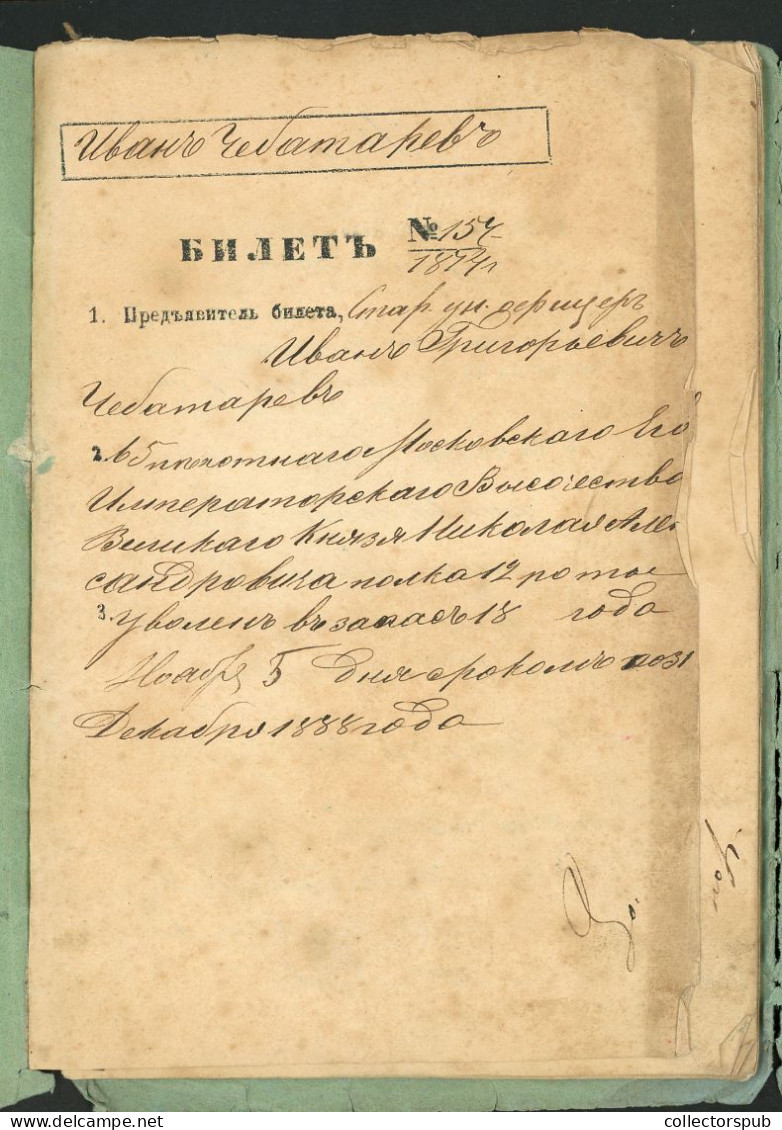 Иванъ Чебатаревъ
БИЛЕТЪ № 157
1877 г
1. Предъявитель билета, Стар. ун. оерицеръ
Иванъ Григорьевичъ
Чебатаревъ
2. 65 пехотнаго Московскаго Его
Императорскаго Высочества
Великаго Князя Николая Алек
сандровича полка 12 роты
3. Уволенъ въ запасъ 18 года
Ноября 5 дня срокомъ по 31
Декабря 1888 года
collectorspub